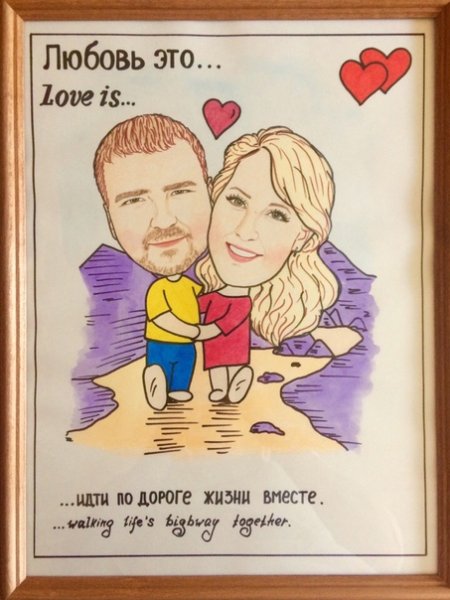 Любовь это...
Love is...
...идти по дороге жизни вместе.
...walking life's bigbway together.